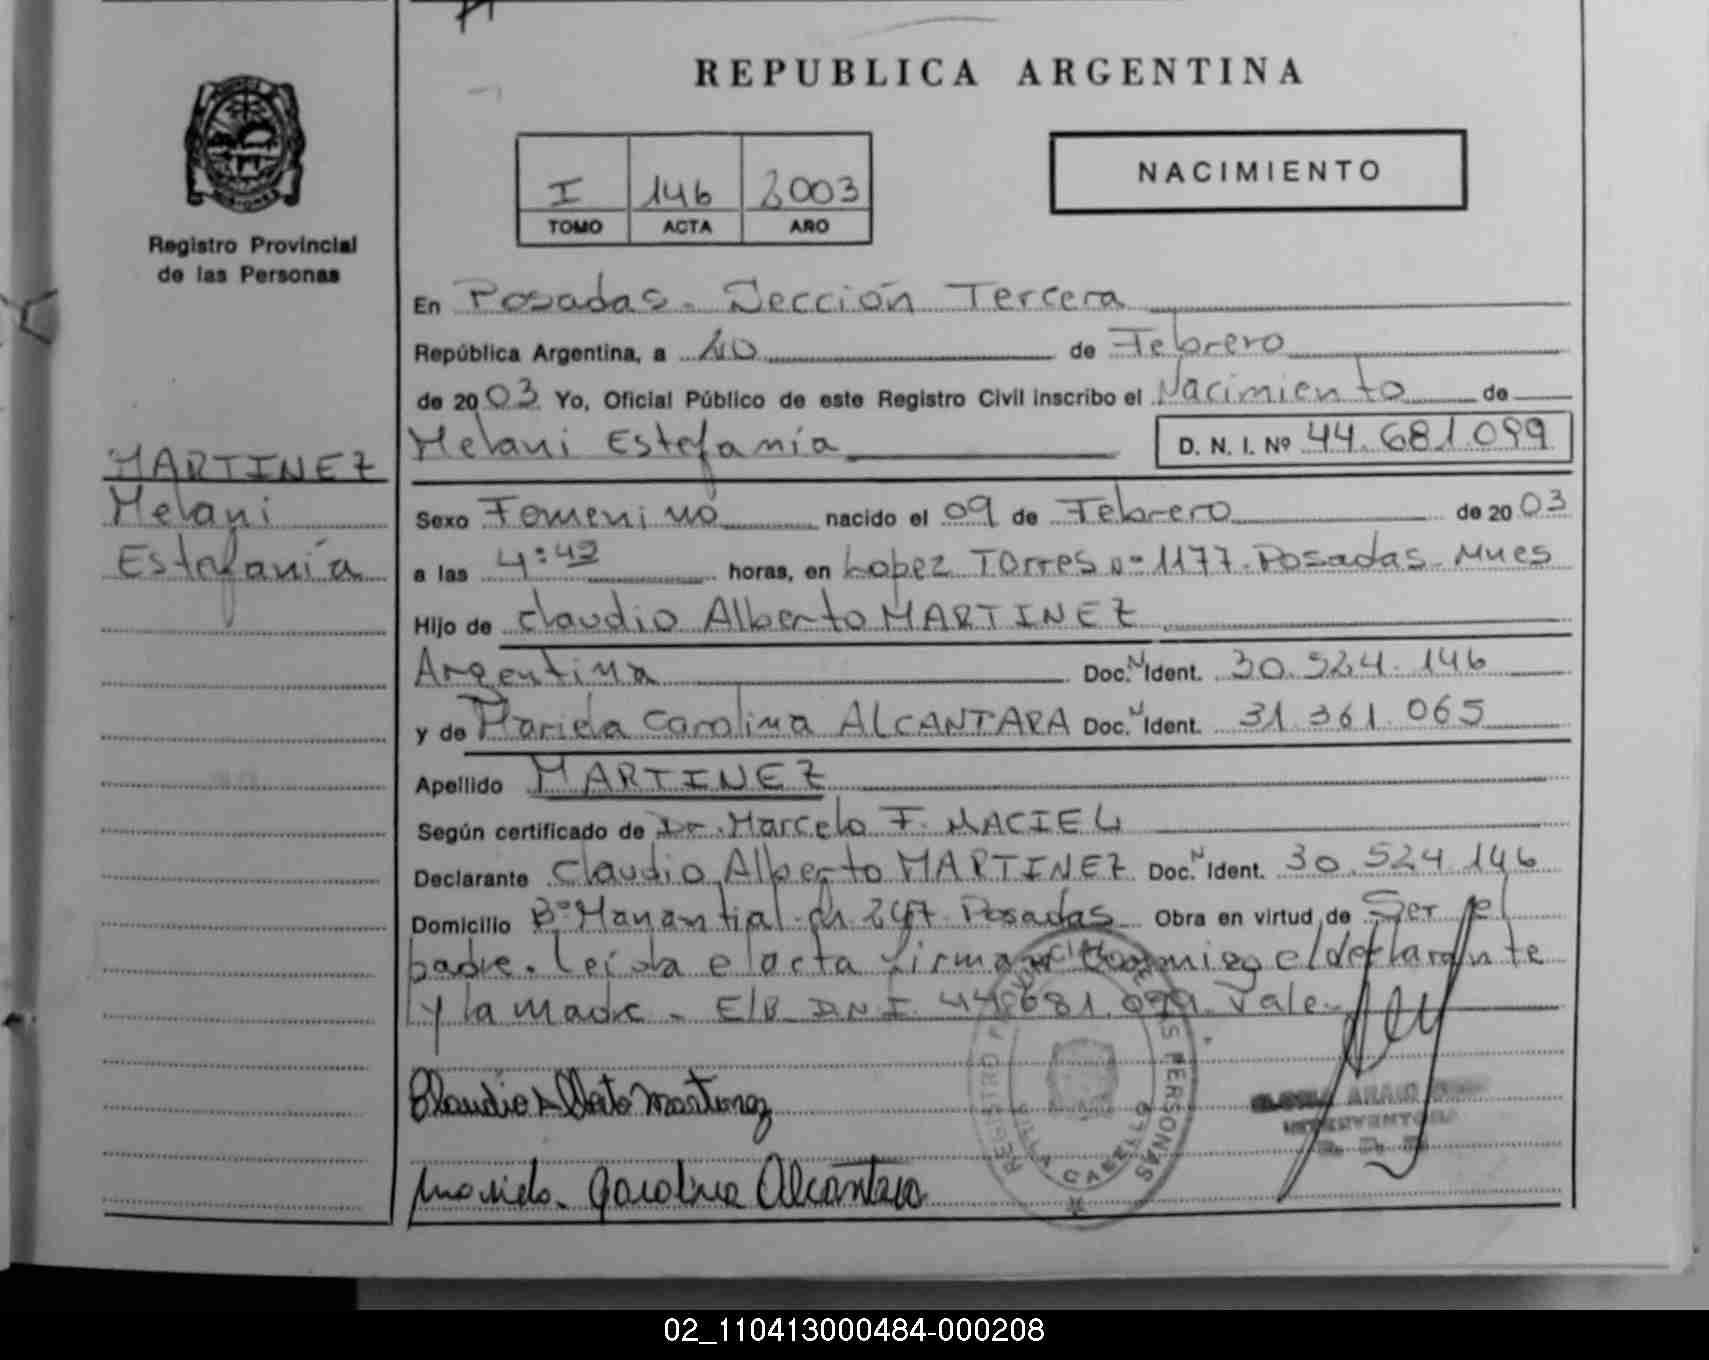 REPUBLICA ARGENTINA
NACIMIENTO
I 146 2003
TOMO ACTA AÑO
Registro Provincial
de las Personas
MARTINEZ
Melani
Estefanía
En Posadas - Sección Tercera
República Argentina, a 10 de Febrero
de 2003 Yo, Oficial Público de este Registro Civil inscribo el Nacimiento de
Melani Estefanía D. N. I. Nº 44.681.099
Sexo Femenino nacido el 09 de Febrero de 2003
a las 4:42 horas, en Lopez Torres nº 1177. Posadas. Mnes
Hijo de Claudio Alberto MARTINEZ
Argentina Doc. N Ident. 30.524.146
y de Mariela Carolina ALCANTARA Doc. N Ident. 31.361.065
Apellido MARTINEZ
Según certificado de Dr. Marcelo F. MACIEL
Declarante Claudio Alberto MARTINEZ Doc. N Ident. 30.524.146
Domicilio Bº Manantial ch 247 Posadas Obra en virtud de Ser el
padre. Leída el acta firman conmigo el declarante
y la madre - E/B D.N.I. 44.681.099. Vale-
Claudio Alberto Martinez
Mariela Carolina Alcantara
REGISTRO PERSONAS
VILLA CABELLO
INTERVENTORA
02_110413000484-000208